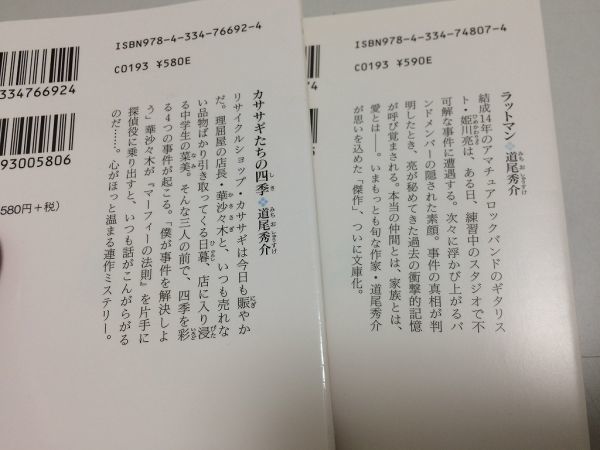 ISBN978-4-334-76692-4
C0193 ¥580E
334766924
93005806
580円+税)
カササギたちの四季❖道尾秀介
リサイクルショップ・カササギは今日も賑やか
だ。理屈屋の店長・華沙々木と、いつも売れな
い品物ばかり引き取ってくる日暮、店に入り浸
る中学生の菜美。そんな三人の前で、四季を彩
る4つの事件が起こる。「僕が事件を解決しよ
う」華沙々木が『マーフィーの法則』を片手に
探偵役に乗り出すと、いつも話がこんがらがる
のだ……。心がほっと温まる連作ミステリー。
ISBN978-4-334-74807-4
C0193 ¥590E
ラットマン❖道尾秀介
結成14年のアマチュアロックバンドのギタリス
ト・姫川亮は、ある日、練習中のスタジオで不
可解な事件に遭遇する。次々に浮かび上がるバ
ンドメンバーの隠された素顔。事件の真相が判
明したとき、亮が秘めてきた過去の衝撃的記憶
が呼び覚まされる。本当の仲間とは、家族とは、
愛とは――。いまもっとも旬な作家・道尾秀介
が思いを込めた「傑作」、ついに文庫化。